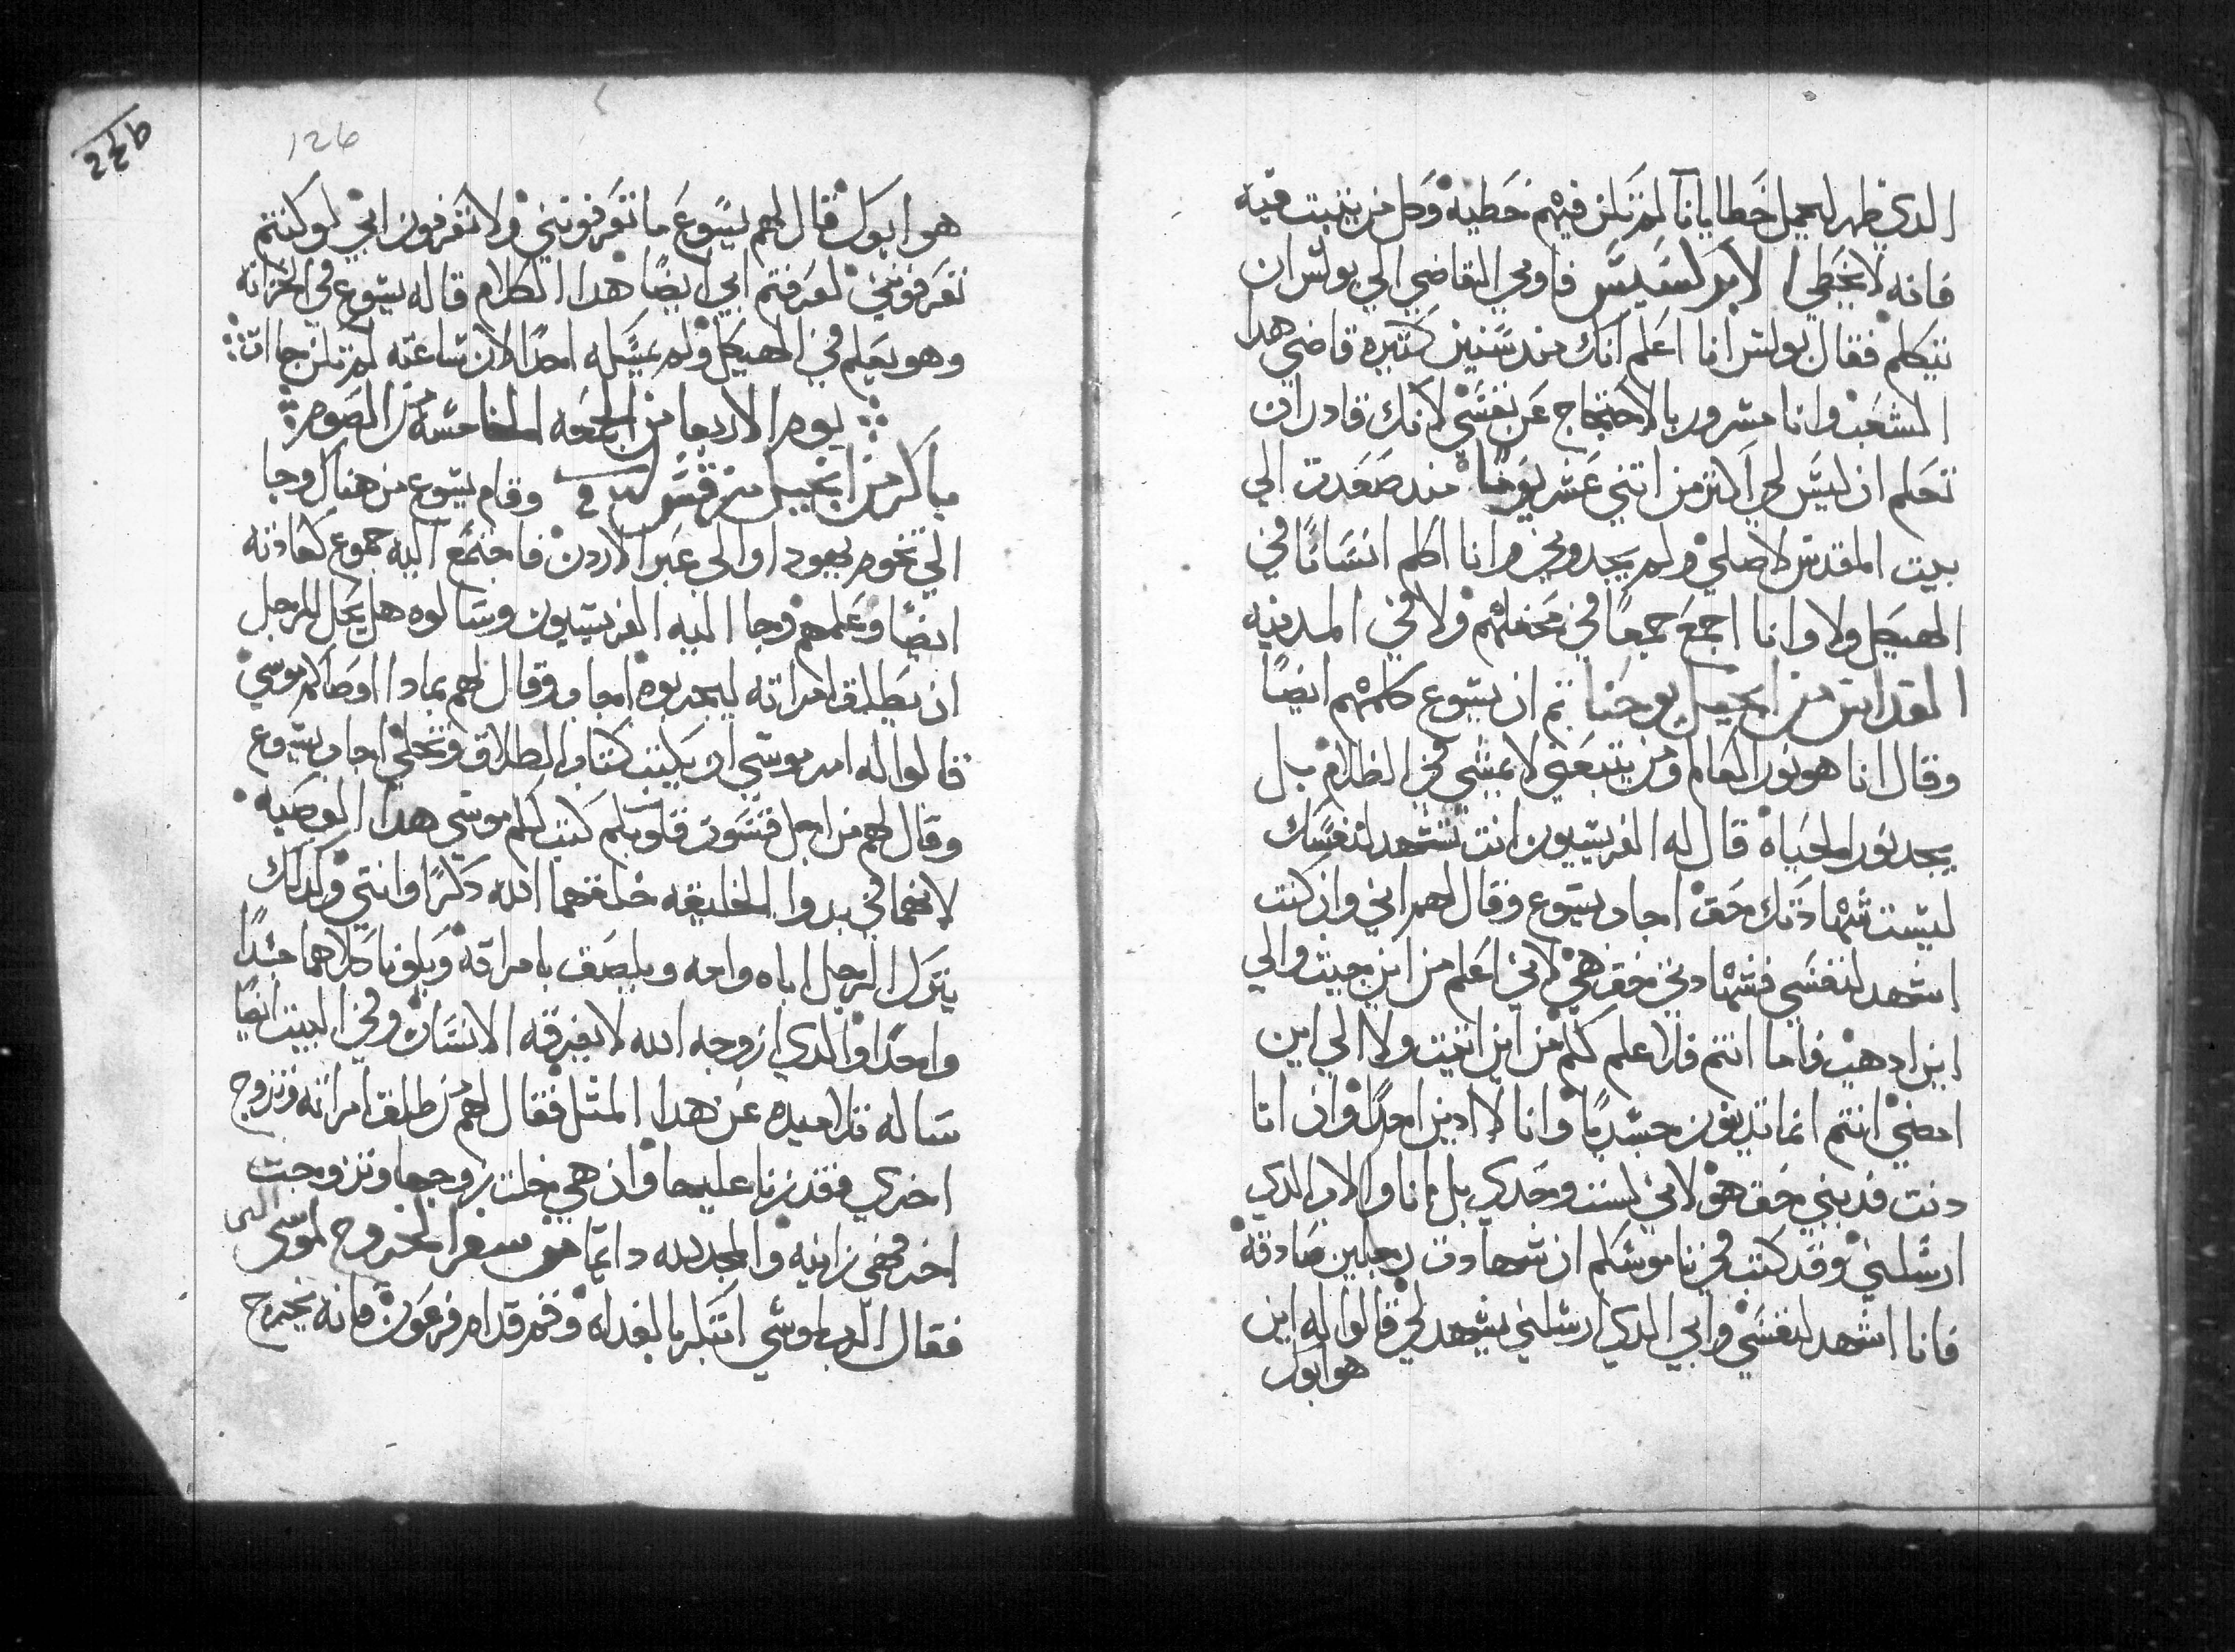 الدي ظهر ليحمل خطايانا لم تكن فيهم خطية وكل من يتبت فيه
فانه لا يخطي الابركسيس فاومي القاضي الي بولس ان
يتكلم فقال بولس انا اعلم انك مند سنين كتيره قاضي هدا
الشعب وانا مسرور بالاحتجاج عن نفسي لانك قادر ان
تعلم ان ليس لي اكتر من اتني عشر يومًا مند صعدت الي
بيت المقدس لاصلي ولم يجدوني وانا اكلم انسانًا في
الهيكل ولا وانا اجمع جمعًا في محفلهم ولا في المدينه
القداس من انجيل يوحنا تم ان يسوع كلمهم ايضًا
وقال انا هو نور العالم ومن يتبعني لا يمشي في الظلام بل
يجد نور الحياه قال له الفريسيون انت تشهد لنفسك
ليست شهادتك حق اجاب يسوع وقال لهم اني وان كنت
اشهد لنفسي فشهادتي حق هي لاني اعلم من اين جيت والي
اين ادهب فاما انتم فلا علم لكم من اين اتيت ولا الي اين
امضي انتم انما تدينون جسديًا وانا لا ادين احدًا وان انا
دنت فديني حق هو لاني لست وحدي بل انا والاب الدي
ارسلني وقد كتب في ناموسكم ان شهادت رجلين صادقة
فانا اشهد لنفسي وابي الدي ارسلني يشهد لي قالوا له اين
هو ابوك
126
هو ابوك قال لهم يسوع ما تعرفونني ولا تعرفون ابي لو كنتم
تعرفونني لعرفتم ابي ايضًا هدا الكلام قاله يسوع في الخزانه
وهو يعلم في الهيكل ولم يمسكه احدًا لان ساعته لم تكن جاات
يوم الاربعا من الجمعه الخامسة من الصوم
باكر من انجيل مرقس وقام يسوع من هناك وجا
الي تخوم يهودا والي عبر الاردن فاجتمع اليه جموع كعادته
ايضًا وعلمهم وجا اليه الفريسيون وسالوه هل يحل للرجل
ان يطلق امراته ليجربوه اجاب وقال لهم بمادا اوصاكم موسي
قالوا له امر موسي ان يكتب كتاب الطلاق وتخلي اجاب يسوع
وقال لهم من اجل قسوت قلوبكم كتب لكم موسي هدا الوصيه
لانهما في بدوا الخليقه خلقهما الله دكرًا وانتي وكدلك
يترك الرجل اباه وامه ويلصق بامراته ويكونا كلاهما جسدًا
واحدًا والدي ازوجه الله لا يفرقه الانسان وفي البيت ايضًا
ساله تلاميده عن هدا المتل فقال لهم من طلق امراته وتزوج
اخري فقد زنا عليها وان هي خلت زوجها وتزوجت
اخر فهي زانيه والمجد لله دايمًا من سفر الخروج لموسي النبي
فقال الرب لموسي ابتكر بالغداه وقم قدام فرعون فانه يخرج